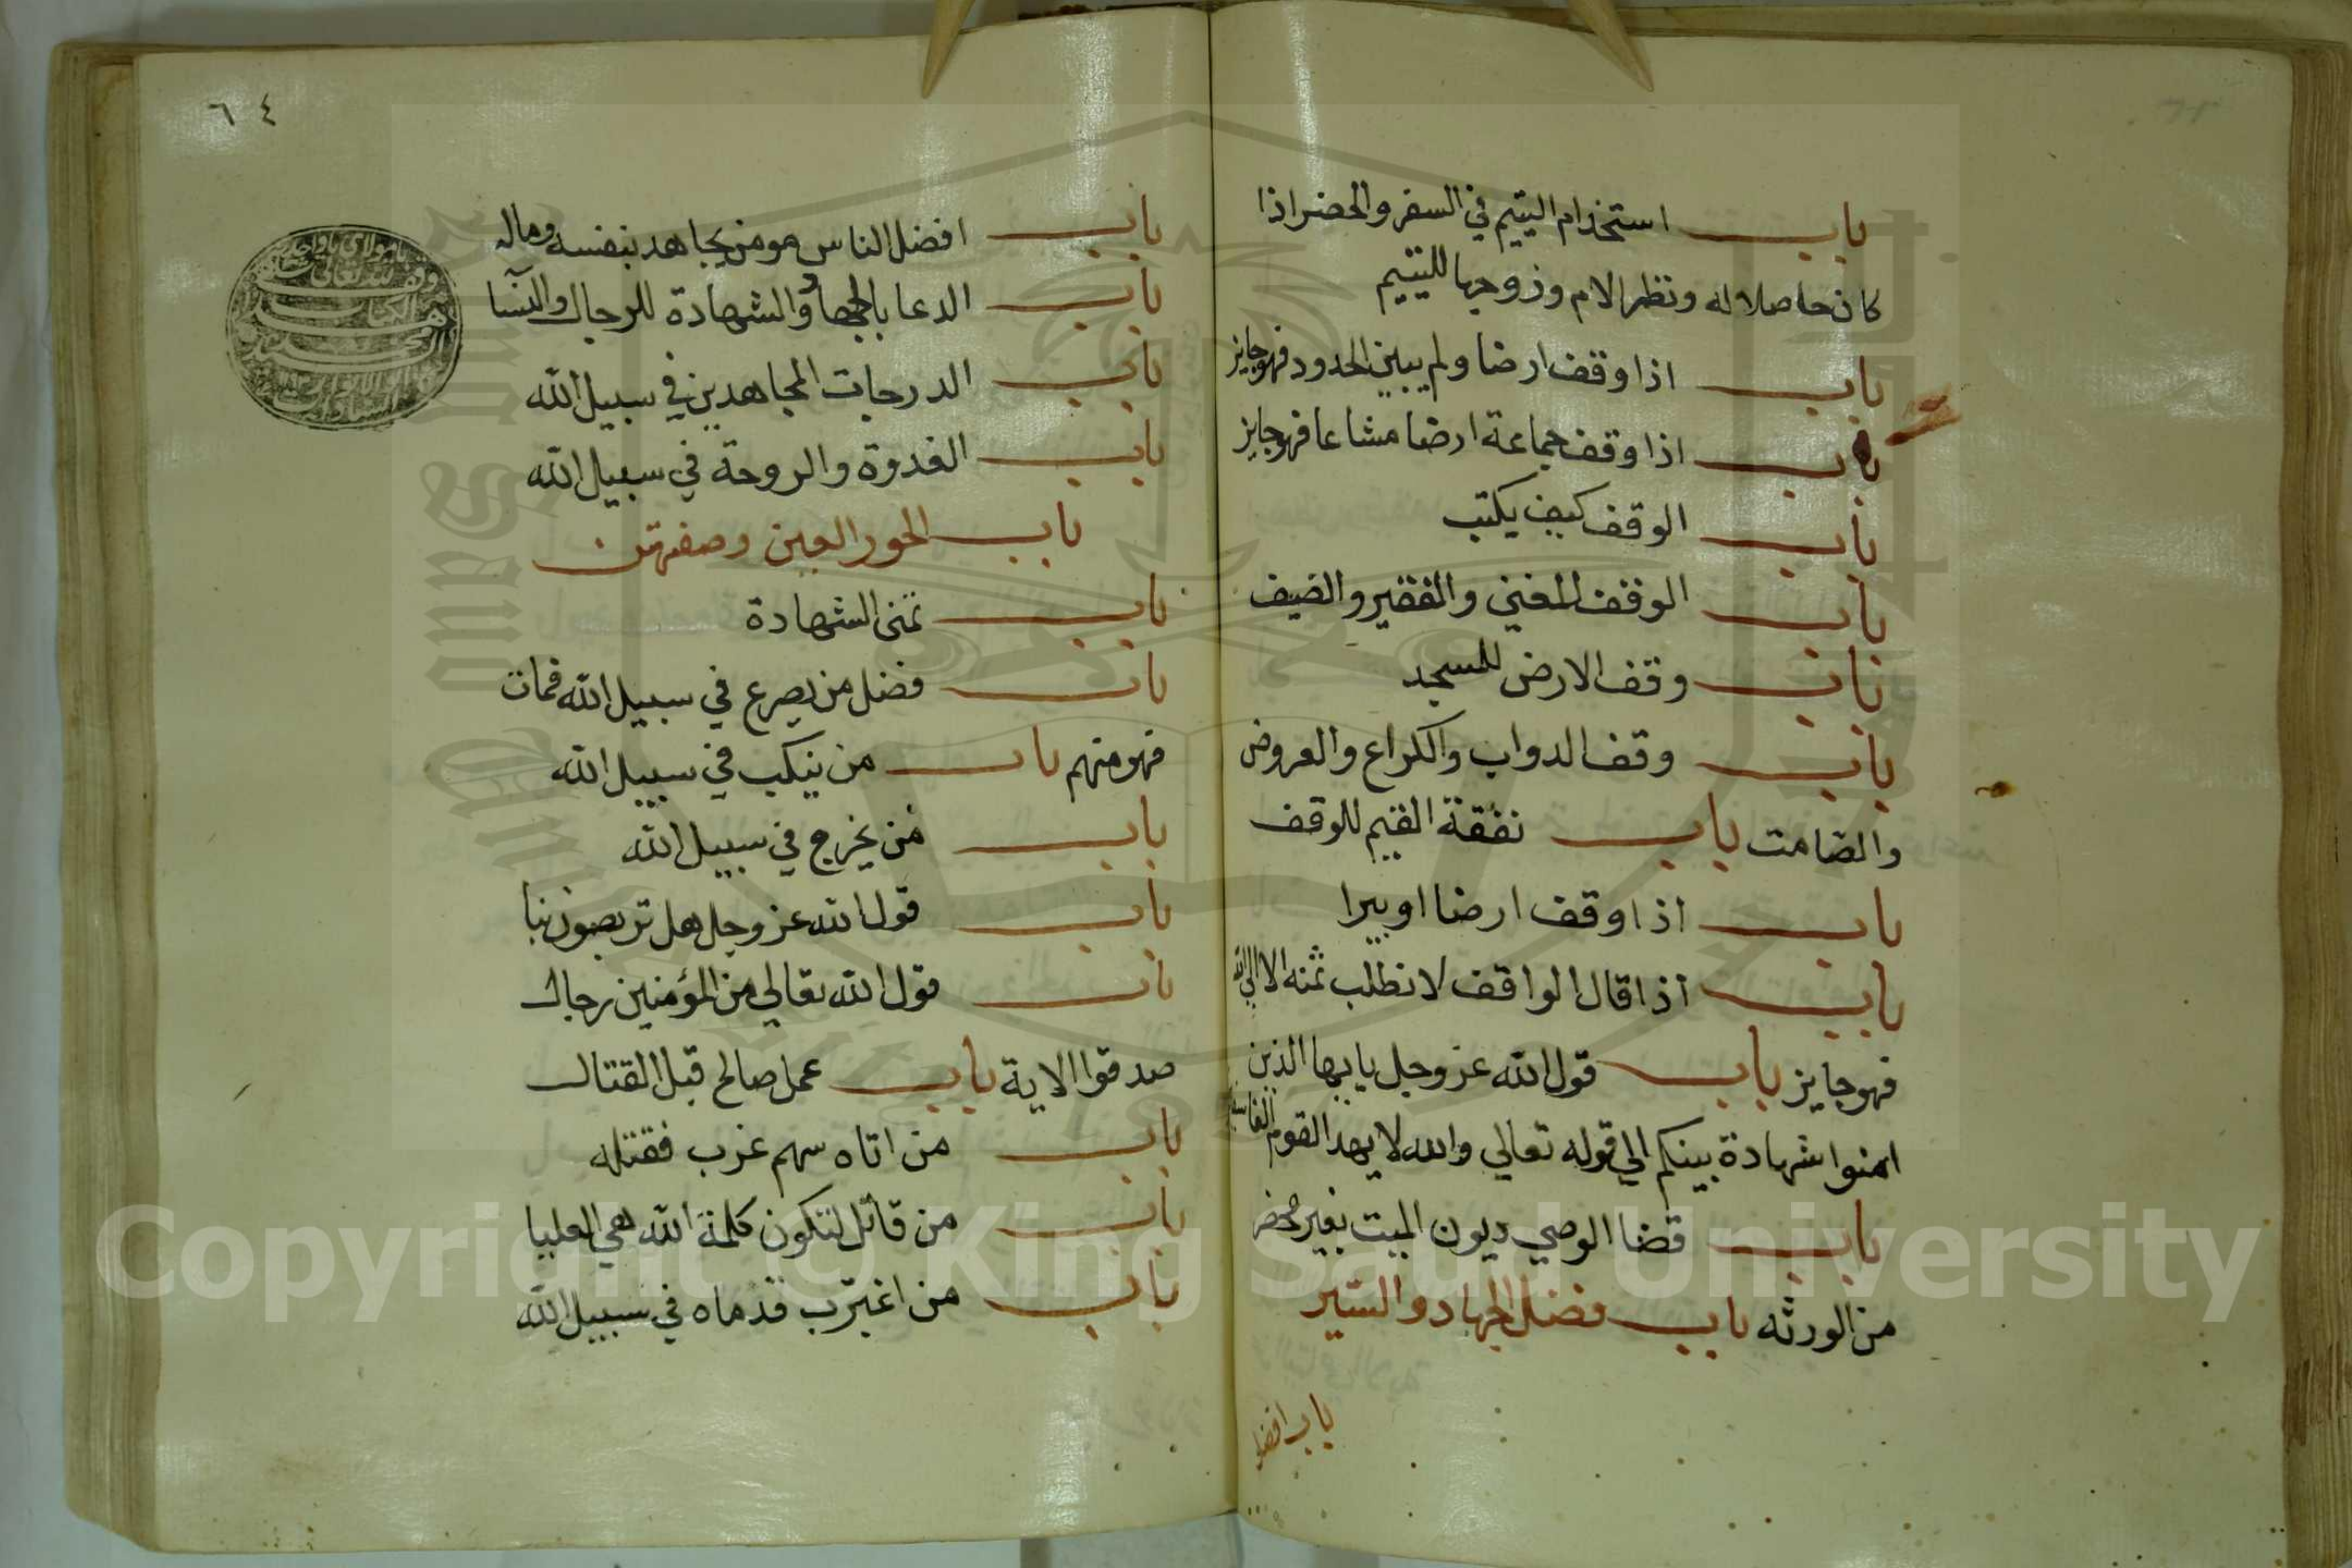 باب استخدام اليتيم في السفر والحضر اذا
كان حاصلا له ونظر الام وزوجها لليتيم
باب اذا وقف ارضا ولم يبين الحدود فهو جايز
باب اذا وقف جماعة ارضا مشاعا فهو جايز
باب الوقف كيف يكتب
باب الوقف للغني والفقير والضيف
باب وقف الارض للمسجد
باب وقف الدواب والكراع والعروض
والصامت باب نفقة القيم للوقف
باب اذا وقف ارضا او بيرا
باب اذا قال الواقف لا نطلب ثمنه الا الي الله
فهو جايز باب قول الله عز وجل يا ايها الذين
امنوا شهادة بينكم الي قوله تعالي والله لا يهد القوم
باب قضا الوصي ديون الميت بغير محضر
من الورثه باب فضل الجهاد والسير
باب افضل
٦٤
باب افضل الناس مومن يجاهد بنفسه وماله
باب الدعا بالجهاد والشهادة للرجال والنسا
باب الدرجات المجاهدين في سبيل الله
باب الغدوة والروحة في سبيل الله
باب الحور العين وصفتهن
باب تمني الشهادة
باب فضل من يصرع في سبيل الله فمات
فهو منهم باب من ينكب في سبيل الله
باب من يخرج في سبيل الله
باب قول الله عز وجل هل تربصون بنا
باب قول الله تعالي من المؤمنين رجال
صدقوا الاية باب عمل صالح قبل القتال
باب من اتاه سهم غرب فقتله
باب من قاتل لتكون كلمة الله هي العليا
باب من اغبرت قدماه في سبيل الله
Copyright © King Saud University